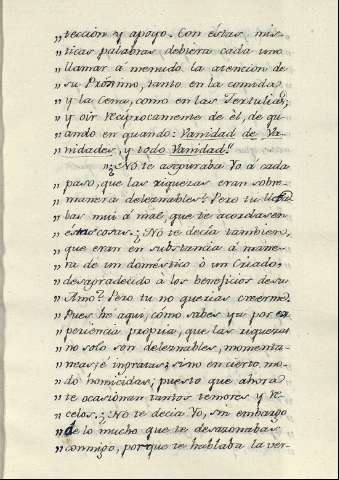 „ teccion y apoyo. Con éstas mis-
„ ticas palabras debiera cada uno
„ llamar á menudo la atencion de
„ su Próximo, tanto en la comida
„ y la Cena, como en las Tertulias;
„ y oír reciprocamente de él, de qu-
„ ando en quando: Vanidad de Va-
„ nidades, y todo Vanidad!!
„ ¿No te aseguraba Yo á cada
„ paso, que las riquezas eran sobre-
„ manera deleznables? Pero tu lleva
„ bas mui á mal, que te acordasen
„ estas cosas. ¿No te decía tambien,
„ que eran en substancia á mane-
„ ra de un doméstico ò un Criado,
„ desagradecido á los beneficios de su
„ Amo? Pero tu no querias creerme.
„ Pues hé aquí, cómo sabes ya por ex
„ periencia própria, que las riquezas
„ no solo son deleznables, momenta-
„ neas, é ingratas; sino en cierto mo-
„ do homicidas; puesto que ahora
„ te ocasionan tantos temores y re-
„ celos. ¿No te decía Yo, sin embargo
„ de lo mucho que te desazonabas
„ conmigo, porque te hablaba la ver-